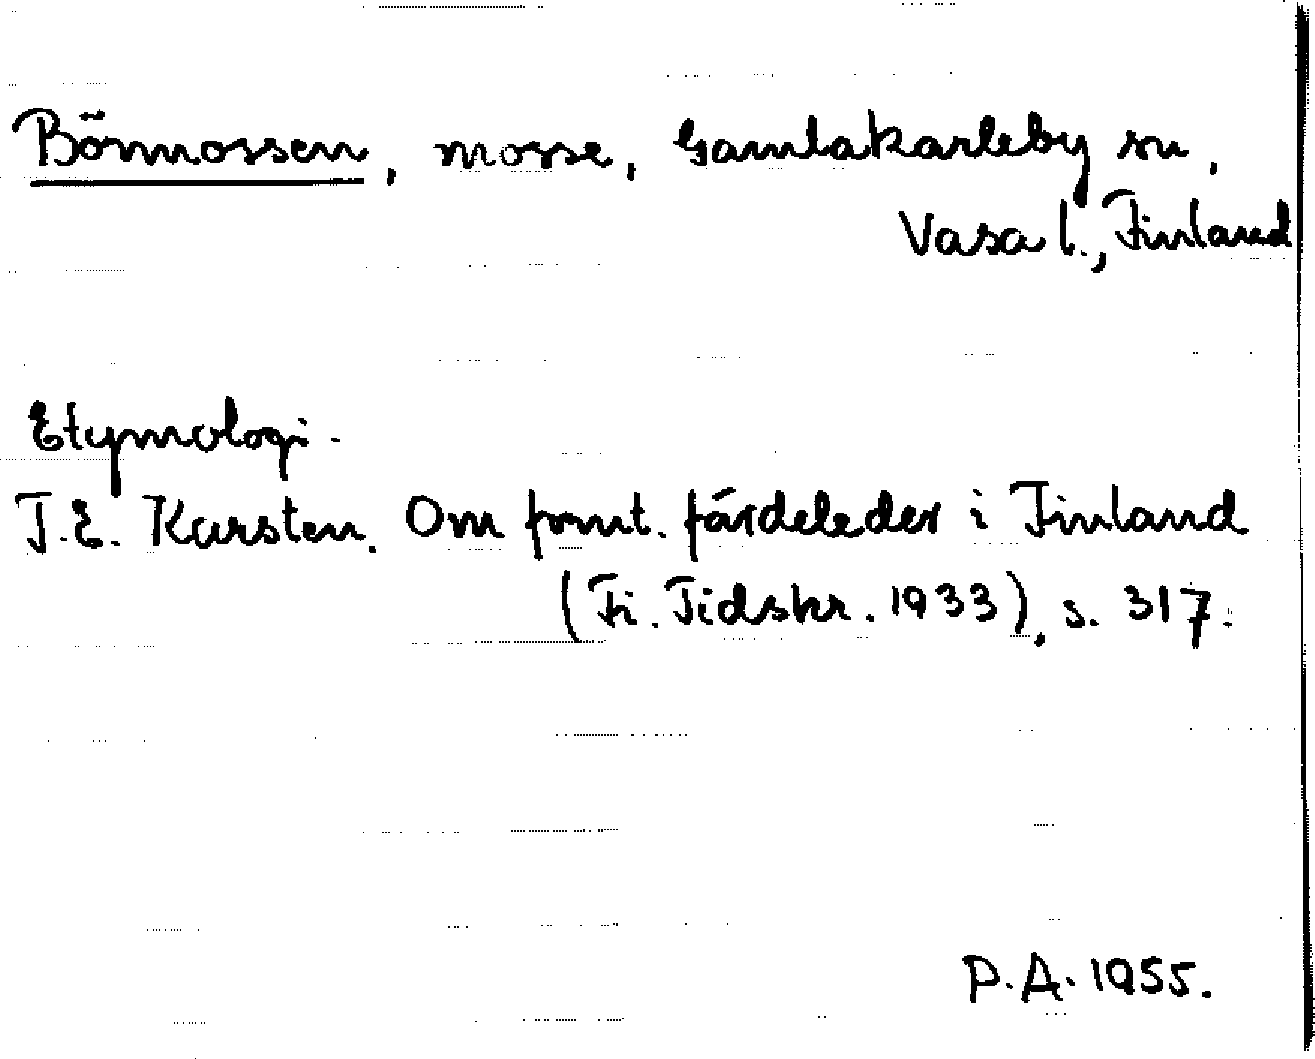 Bönmossen, mosse, Gamlakarleby sn,
Vasa l., Finland
Etymologi.
T.E. Karsten. Om fornt. färdeleder i Finland
(Fi. Tidskr. 1933), s. 317.
P.A. 1955.